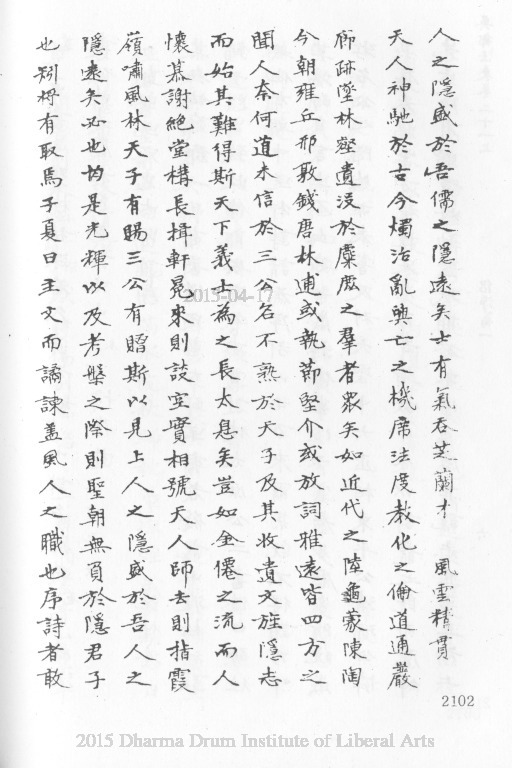 人之隱盛於吾儒之隱遠矣士有氣吞芝蘭才 風雲精貫
天人神馳於古今燭治亂興亡之機席法度教化之倫道通嚴
廊跡墜林壑遺沒於麋鹿之羣者眾矣如近代之陸龜蒙陳陶
今朝雍丘邢敦錢唐林逋或執節堅介或放詞雅遠皆四方之
聞人奈何道未信於三公名不熟於天子及其收遺文旌隱志
而始其難得斯天下義士為之長太息矣豈如金僊之流而人
懷慕謝絕堂構長揖軒冕來則談空實相號天人師去則指霞
嶺嘯風林天子有賜三公有贈斯以見上人之隱盛於吾人之
隱遠矣必也均是光輝以及考槃之際則聖朝無負於隱君子
也矧將有取焉子夏曰主文而譎諫蓋風人之職也序詩者敢
2102
2013-04-17
2015 Dharma Drum Institute of Liberal Arts